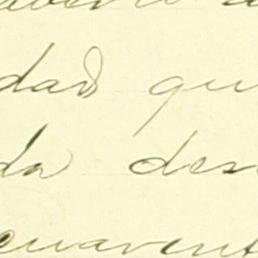 dad qu
da des
cuarent